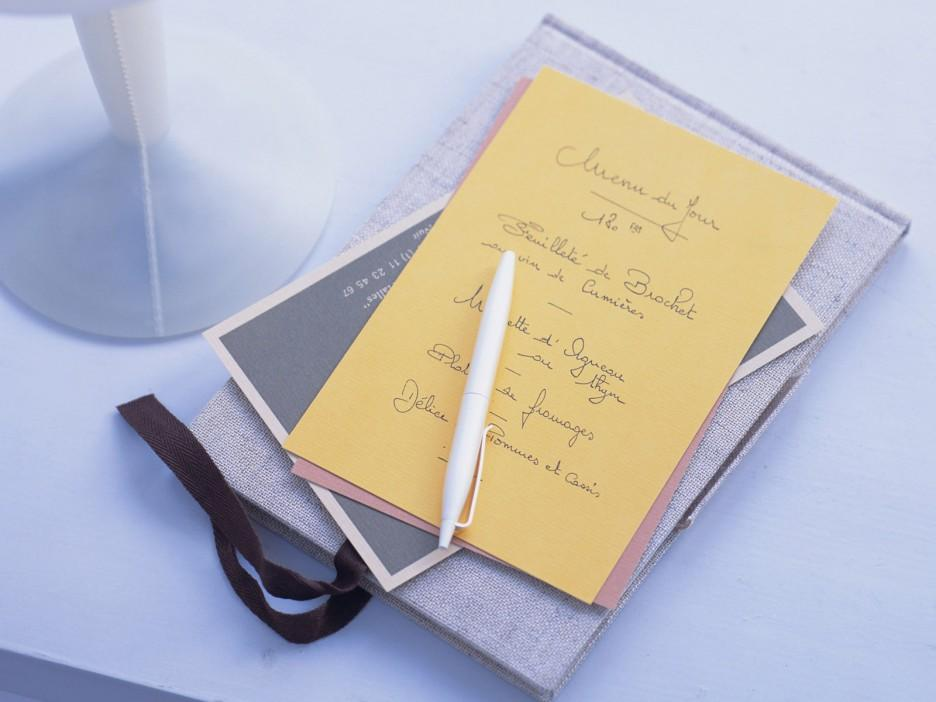 Menu du Jour
180 F
Feuilleté de Brochet
au vin de Cumières
d'Agneau
au thym
de fromages
Délice Pommes et Cassis
(1) 11 23 45 67